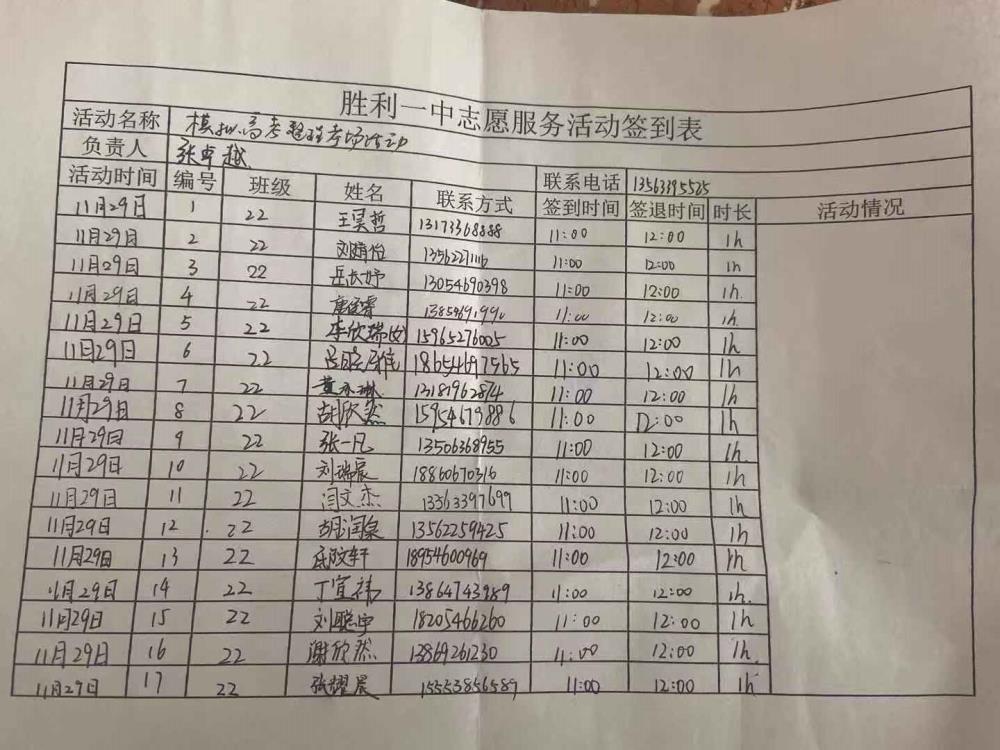 胜利一中志愿服务活动签到表
活动名称 模拟高考整理考场活动
负责人 张卓越 联系电话 13563395525
活动时间 编号 班级 姓名 联系方式 签到时间 签退时间 时长 活动情况
11月29日 1 22 王昊哲 13173368888 11:00 12:00 1h
11月29日 2 22 刘婧怡 11:00 12:00 1h
11月29日 3 22 岳长妤 13054690398 11:00 12:00 1h
11月29日 4 22 11:00 12:00 1h
11月29日 5 22 李欣瑞(女) 15965276005 11:00 12:00 1h
11月29日 6 22 18654697565 11:00 12:00 1h
11月29日 7 22 黄永琳 13181962874 11:00 12:00 1h
11月29日 8 22 胡欣然 15954679886 11:00 12:00 1h
11月29日 9 22 张一凡 13506368955 11:00 12:00 1h
11月29日 10 22 刘瑞宸 18860670316 11:00 12:00 1h
11月29日 11 22 闫文杰 13563397699 11:00 12:00 1h
11月29日 12 22 胡润泉 13562259425 11:00 12:00 1h
11月29日 13 22 18954600969 11:00 12:00 1h
11月29日 14 22 丁宣祎 13864743989 11:00 12:00 1h
11月29日 15 22 刘聪宇 18205466260 11:00 12:00 1h
11月29日 16 22 谢欣然 13869261230 11:00 12:00 1h
11月29日 17 22 张耀晨 15553856589 11:00 12:00 1h